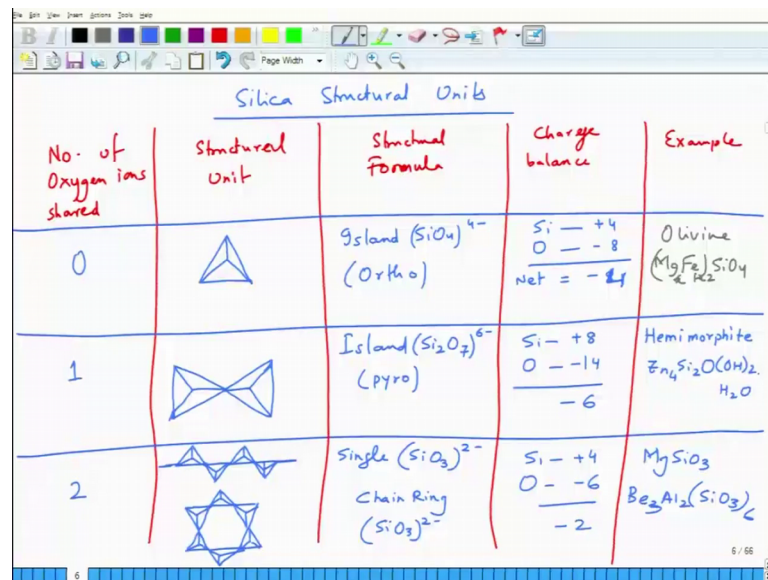 File Edit View Insert Actions Tools Help
Page Width
Silica Structural Units
No. of Oxygen ions shared
Structural Unit
Structural Formula
Charge balance
Example
0
Island (SiO4)4-
(Ortho)
Si — +4
O — -8
Net = -4
Olivine
SiO4
1
Island (Si2O7)6-
(pyro)
Si — +8
O — -14
-6
Hemimorphite
Zn4Si2O(OH)2.
H2O
2
Single (SiO3)2-
Chain Ring
(SiO3)2-
Si — +4
O — -6
-2
MgSiO3
Be3Al2(SiO3)6
6 / 66
6